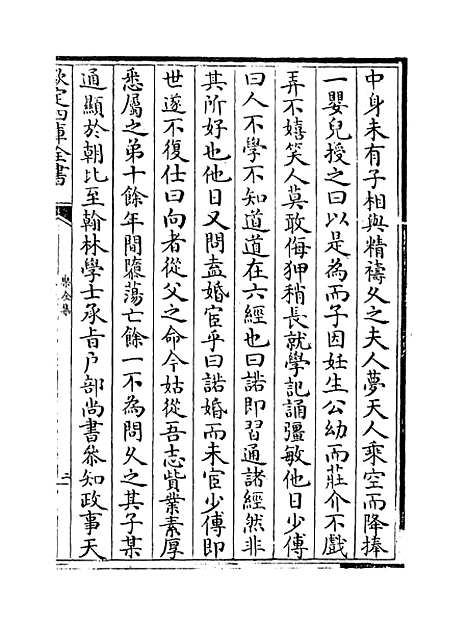 中身未有子相與精禱久之夫人夢天人乘空而降捧
一嬰兒授之曰以是為而子因妊生公幼而莊介不戲
弄不嬉笑人莫敢侮狎稍長就學記誦彊敏他日少傅
曰人不學不知道道在六經也曰諾即習通諸經然非
其所好也他日又問盍婚宦乎曰諾婚而未宦少傅即
世遂不復仕曰向者從父之命今姑從吾志貲業素厚
悉屬之弟十餘年間隳蕩亡餘一不為問久之其子某
通顯於朝比至翰林學士承旨户部尚書叅知政事天
欽定四庫全書
樂全集
二